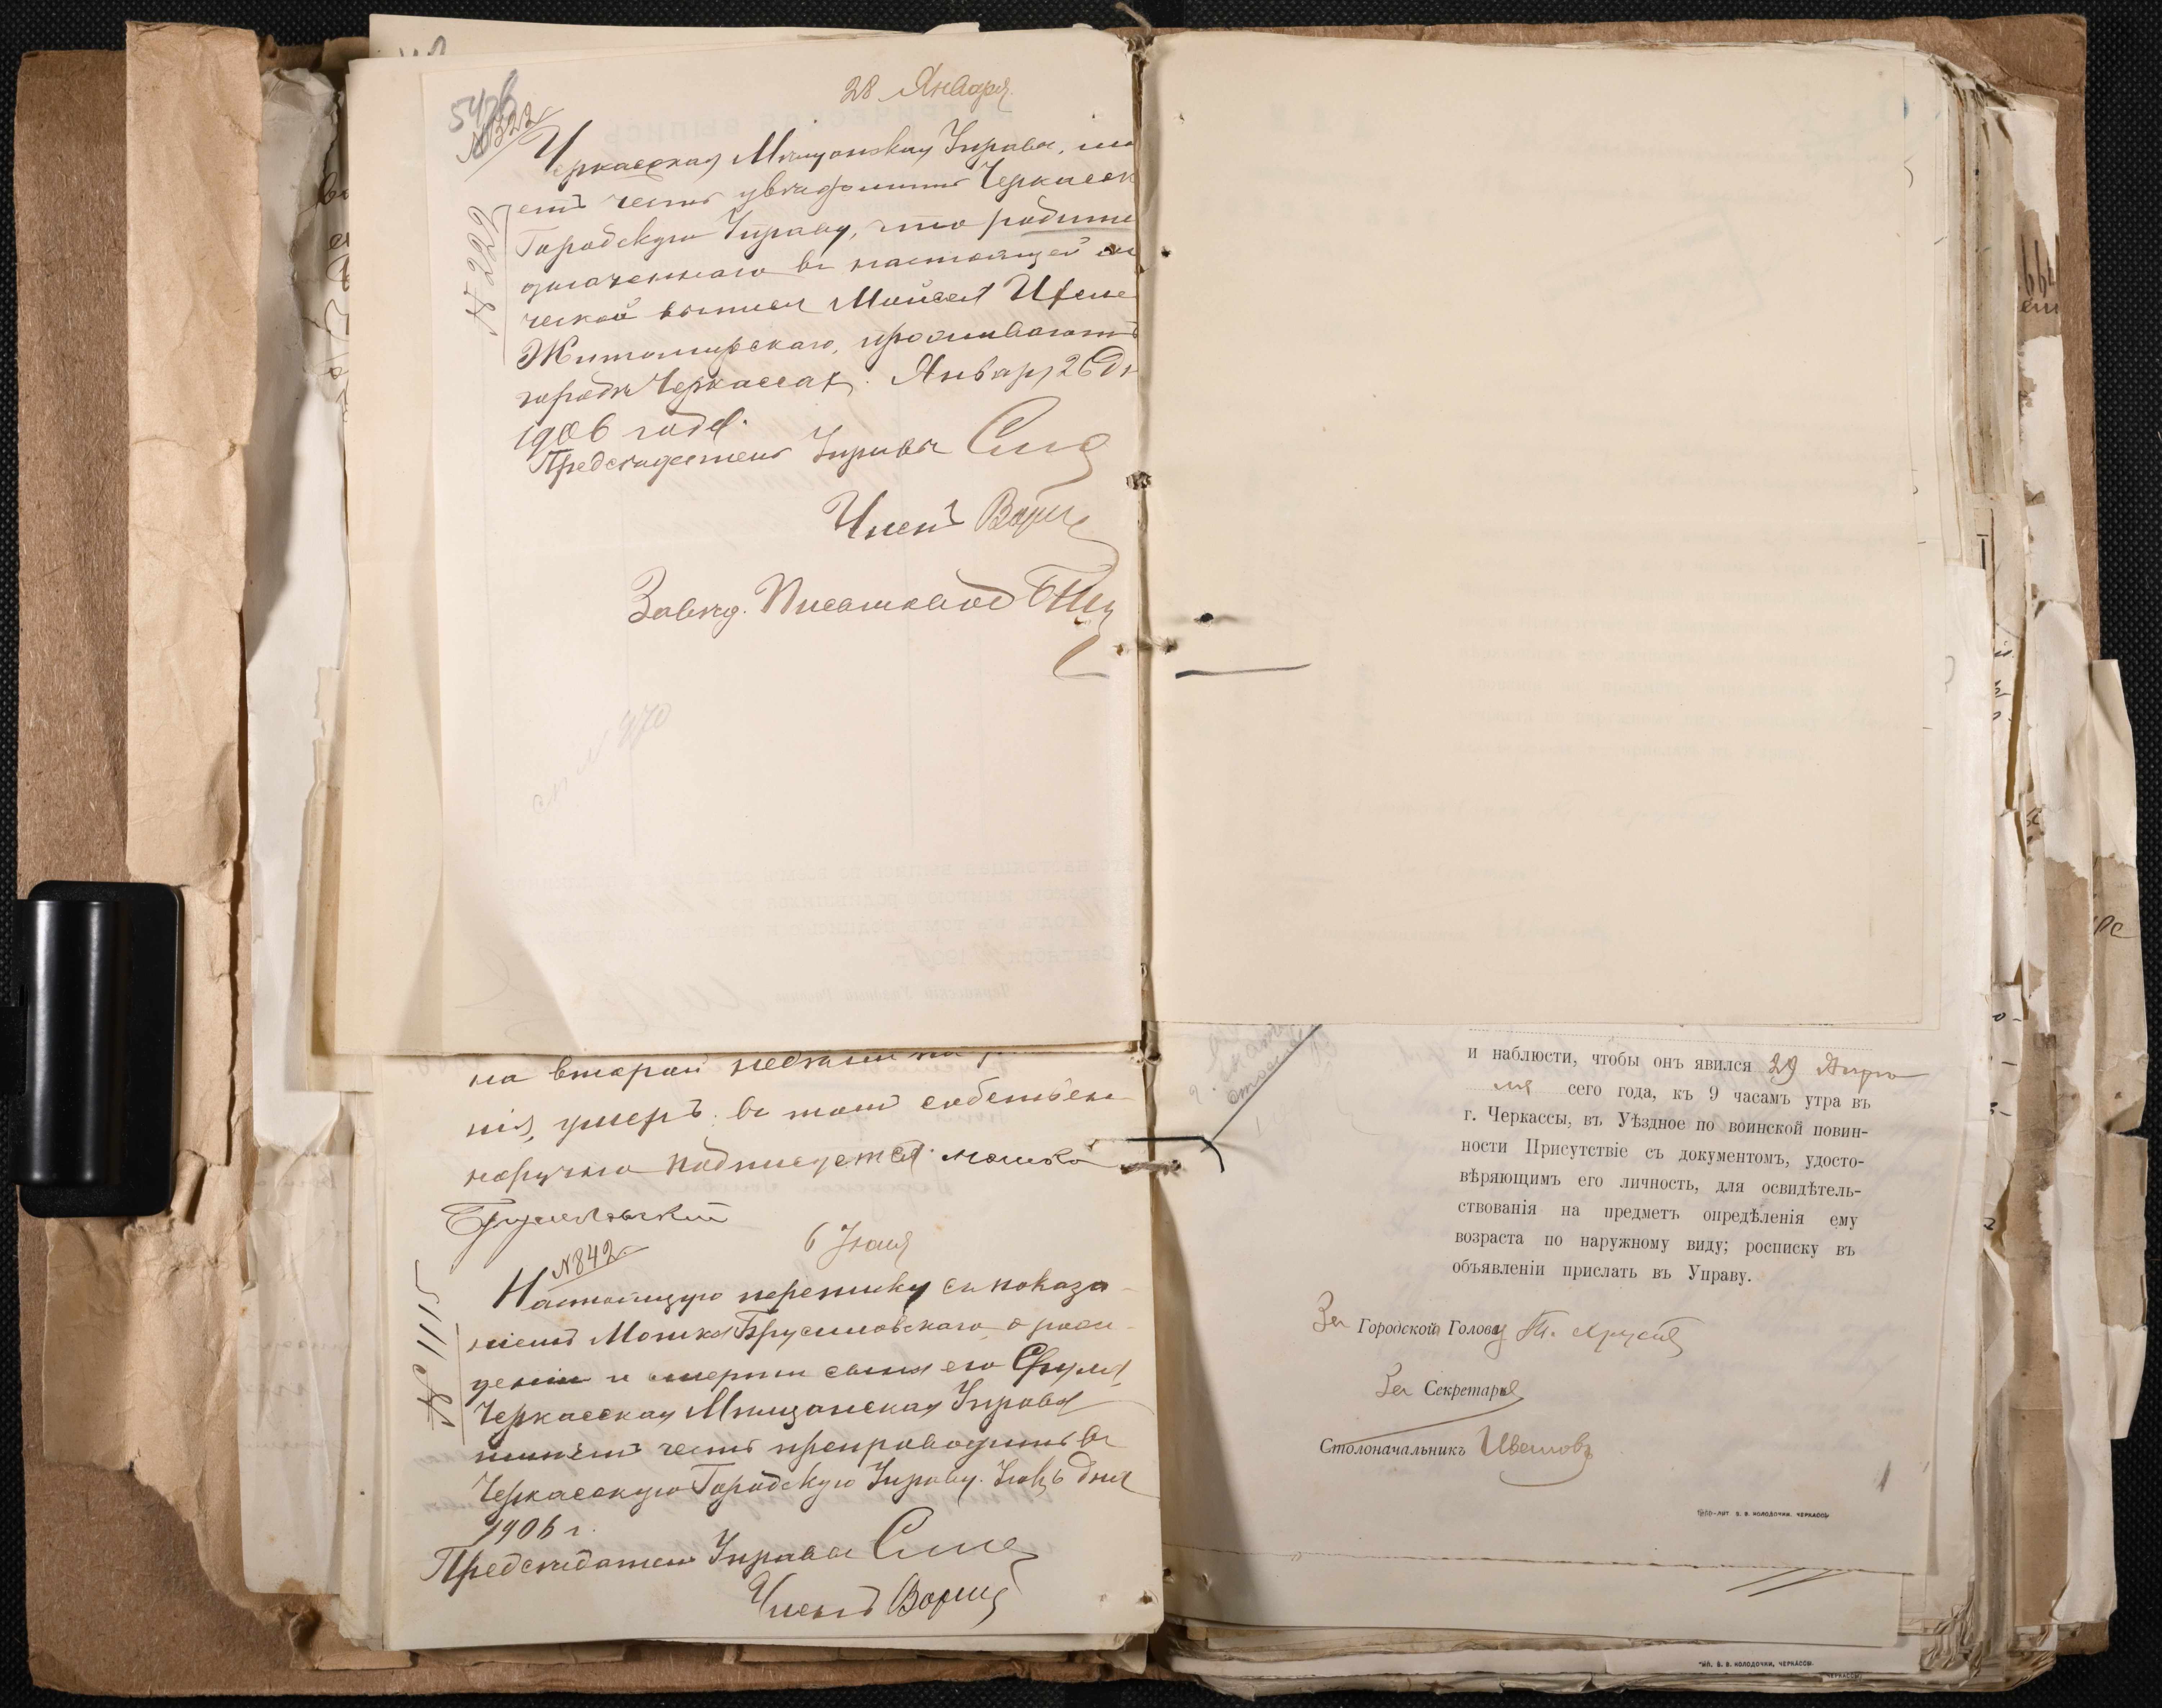 28 Января
№322
№ 222
Черкасская Мѣщанская Управа, имѣ
етъ честь увѣдомить Черкасск
Городскую Управу, что родите
означеннаго въ настоящей ме
ческой выписи Мойсея
Житомирскаго, проживаютъ
городѣ Черкассах. Января 26 дн
1906 года.
Предсѣдатель Управы
Членъ
Завѣд. Письмовод
на второй недѣли
нія, умеръ. въ томъ собствен
норучно подписуется Мошко
Брусиловскій
№842
6 Іюня
№ 1115
Настоящую переписку съ показа
ніемъ Мошка Брусиловскаго о рож
деніи и смерти сына его Сруля,
Черкасская Мѣщанская Управа
имѣетъ честь препроводить въ
Черкасскую Городскую Управу. Іюня 6 дня
1906 г.
Предсѣдатель Управы
Членъ
и наблюсти, чтобы онъ явился 29 Апрѣ
ля сего года, къ 9 часамъ утра въ
г. Черкассы, въ Уѣздное по воинской повин-
ности Присутствіе съ документомъ, удосто-
вѣряющимъ его личность, для освидѣтель-
ствованія на предметъ опредѣленія ему
возраста по наружному виду; росписку въ
объявленіи прислать въ Управу.
За Городской Голову
За Секретаря
Столоначальникъ
ЛИТ. В. В. КОЛОДОЧКИ, ЧЕРКАССЫ
ТИП. В. В. КОЛОДОЧКИ, ЧЕРКАССЫ.